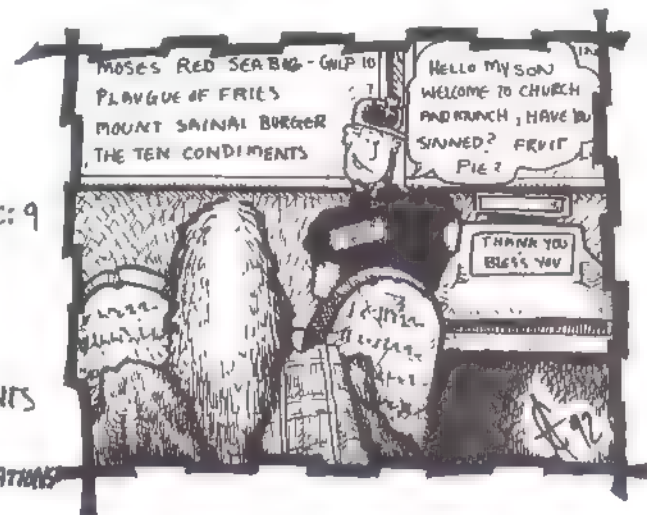 MOSES RED SEA BIG - GULP 10
PLAVGUE OF FRIES 7
MOUNT SAINAI BURGER
THE TEN CONDIMENTS
HELLO MY SON
WELCOME TO CHURCH
AND MUNCH, HAVE YOU
SINNED? FRUIT
PIE?
THANK YOU
BLESS YOU
92